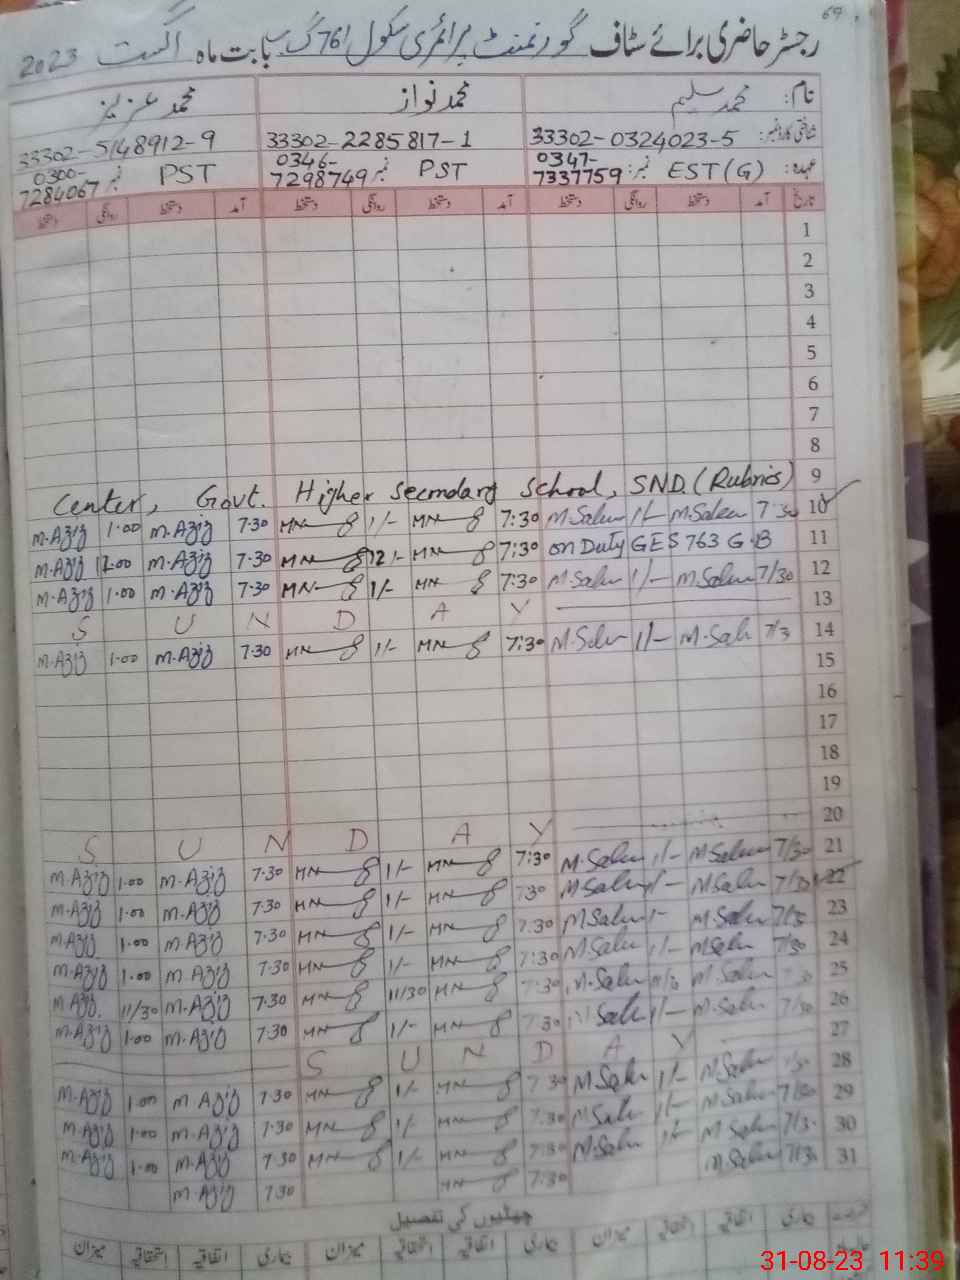 69
رجسٹر حاضری برائے سٹاف گورنمنٹ پرائمری سکول 761 گ ب بابت ماہ اگست 2023
نام: محمد سلیم محمد نواز محمد عزیز
شناختی کارڈ نمبر: 33302-0324023-5 33302-2285817-1 33302-5148912-9
عہدہ: EST (G) نمبر: 0347-7337759 PST نمبر 0346-7298749 PST نمبر 0300-7284067
تاریخ آمد دستخط روانگی دستخط آمد دستخط روانگی دستخط آمد دستخط روانگی دستخط
1
2
3
4
5
6
7
8
9
Center, Govt. Higher Secondary School, SND. (Rubrics)
M.Aziz 1.00 M.Aziz 7.30 MN 1/- MN 7:30 M.Salem 1/- M.Salem 7:30 10
M.Aziz 12.00 M.Aziz 7.30 MN 12/- MN 7:30 on Duty GES 763 G.B 11
M.Aziz 1.00 M.Aziz 7.30 MN 1/- MN 7:30 M.Salem 1/- M.Salem 7/30 12
S U N D A Y 13
M.Aziz 1.00 M.Aziz 7.30 MN 1/- MN 7:30 M.Salem 1/- M.Salem 7/3 14
15
16
17
18
19
S U N D A Y 20
M.Aziz 1.00 M.Aziz 7.30 MN 1/- MN 7:30 M.Salem 1/- M.Salem 7/30 21
M.Aziz 1.00 M.Aziz 7.30 MN 1/- MN 7:30 M.Salem 1/- M.Salem 7/30 22
M.Aziz 1.00 M.Aziz 7.30 MN 1/- MN 7:30 M.Salem 1- M.Salem 7/30 23
M.Aziz 1.00 M.Aziz 7.30 MN 1/- MN 7:30 M.Salem 1/- M.Salem 7/30 24
M.Aziz 11/30 M.Aziz 7.30 MN 11/30 MN 7:30 M.Salem M.Salem 7.30 25
M.Aziz 1.00 M.Aziz 7.30 MN 1/- MN 7:30 M.Salem 1/- M.Salem 7/30 26
S U N D A Y 27
M.Aziz 1.00 M.Aziz 7.30 MN 1/- MN 7:30 M.Salem 1/- M.Salem 7/30 28
M.Aziz 1.00 M.Aziz 7.30 MN 1/- MN 7:30 M.Salem 1/- M.Salem 7/30 29
M.Aziz 1.00 M.Aziz 7.30 MN 1/- MN 7:30 M.Salem 1/- M.Salem 7/30 30
M.Aziz 7.30 MN 7:30 M.Salem 7/30 31
چھٹیوں کی تفصیل
جاری اتفاقیہ استحقاقیہ میزان جاری اتفاقیہ استحقاقیہ میزان جاری اتفاقیہ استحقاقیہ میزان
31-08-23 11:39